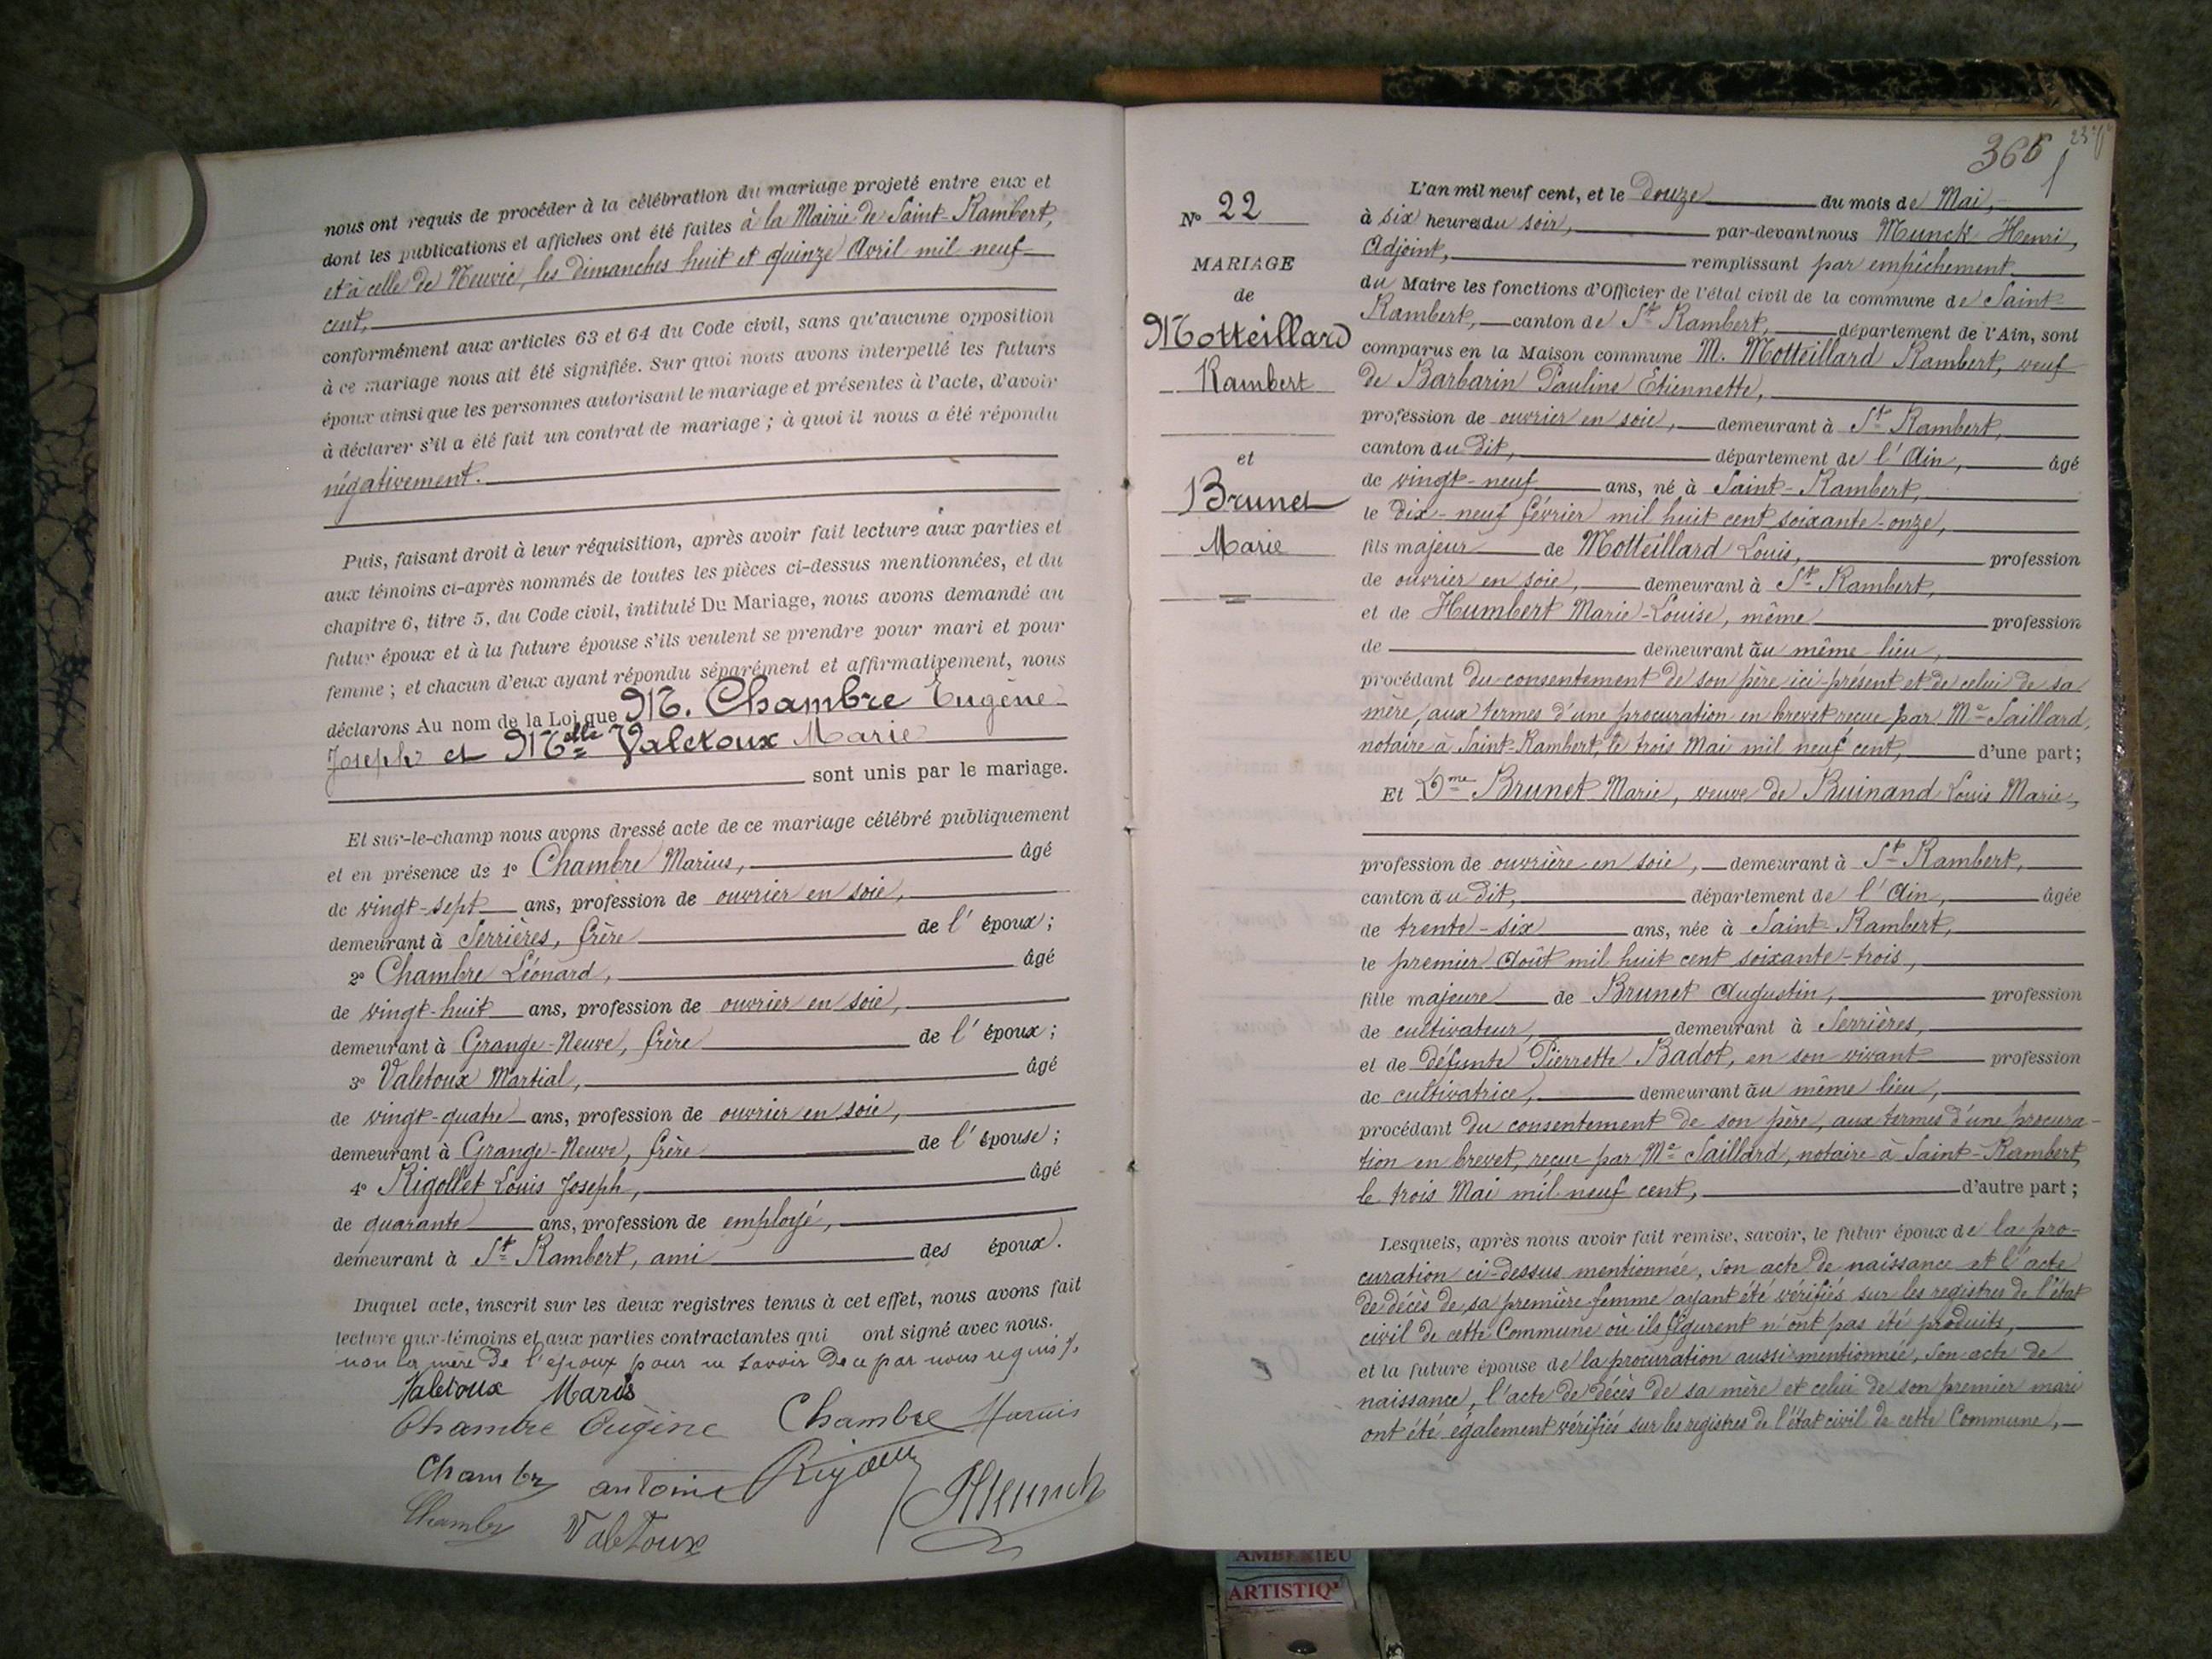 nous ont requis de procéder à la célébration du mariage projeté entre eux et
dont les publications et affiches ont été faites à la Mairie de Saint-Rambert,
et à celle de Neuvic, les dimanches huit et quinze Avril mil neuf
cent,
conformément aux articles 63 et 64 du Code civil, sans qu'aucune opposition
à ce mariage nous ait été signifiée. Sur quoi nous avons interpellé les futurs
époux ainsi que les personnes autorisant le mariage et présentes à l'acte, d'avoir
à déclarer s'il a été fait un contrat de mariage ; à quoi il nous a été répondu
négativement.
Puis, faisant droit à leur réquisition, après avoir fait lecture aux parties et
aux témoins ci-après nommés de toutes les pièces ci-dessus mentionnées, et du
chapitre 6, titre 5, du Code civil, intitulé Du Mariage, nous avons demandé au
futur époux et à la future épouse s'ils veulent se prendre pour mari et pour
femme ; et chacun d'eux ayant répondu séparément et affirmativement, nous
déclarons Au nom de la Loi que M. Chambre Eugène
Joseph et Melle Valetoux Marie
sont unis par le mariage.
Et sur-le-champ nous avons dressé acte de ce mariage célébré publiquement
et en présence de 1° Chambre Marius, âgé
de vingt-sept ans, profession de ouvrier en soie,
demeurant à Serrières, frère de l'époux ;
2° Chambre Léonard, âgé
de vingt-huit ans, profession de ouvrier en soie,
demeurant à Grange-Neuve, frère de l'époux ;
3° Valetoux Martial, âgé
de vingt-quatre ans, profession de ouvrier en soie,
demeurant à Grange-Neuve, frère de l'épouse ;
4° Rigollet Louis Joseph, âgé
de quarante ans, profession de employé,
demeurant à St Rambert, ami des époux.
Duquel acte, inscrit sur les deux registres tenus à cet effet, nous avons fait
lecture aux témoins et aux parties contractantes qui ont signé avec nous.
non la mère de l'époux pour ne savoir de ce par nous requis
Valetoux Marie
Chambre Eugène Chambre Marius
Chambre antoine
Chambre Valetoux HMunck
366
N° 22
MARIAGE
de
Motteillard
Rambert
et
Brunet
Marie
L'an mil neuf cent, et le douze du mois de Mai,
à six heures du soir, par-devant nous Munck Henri,
Adjoint, remplissant par empêchement
du Maire les fonctions d'Officier de l'état civil de la commune de Saint-
Rambert, canton de St Rambert, département de l'Ain, sont
comparus en la Maison commune M. Motteillard Rambert, veuf
de Barbarin Pauline Etiennette,
profession de ouvrier en soie, demeurant à St Rambert,
canton du dit, département de l'Ain, âgé
de vingt-neuf ans, né à Saint-Rambert,
le dix-neuf février mil huit cent soixante-onze,
fils majeur de Motteillard Louis, profession
de ouvrier en soie, demeurant à St Rambert,
et de Humbert Marie-Louise, même profession
de demeurant au même lieu,
procédant du consentement de son père ici présent et de celui de sa
mère, aux termes d'une procuration en brevet reçue par Me Saillard,
notaire à Saint-Rambert, le trois Mai mil neuf cent, d'une part ;
Et Dme Brunet Marie, veuve de Buinand Louis Marie,
profession de ouvrière en soie, demeurant à St Rambert,
canton du dit, département de l'Ain, âgée
de trente-six ans, née à Saint-Rambert,
le premier Août mil huit cent soixante-trois,
fille majeure de Brunet Augustin, profession
de cultivateur, demeurant à Serrières,
et de défunte Pierrette Badot, en son vivant profession
de cultivatrice, demeurant au même lieu,
procédant du consentement de son père, aux termes d'une procura-
tion en brevet, reçue par Me Saillard, notaire à Saint-Rambert,
le trois Mai mil neuf cent, d'autre part ;
Lesquels, après nous avoir fait remise, savoir, le futur époux de la pro-
curation ci-dessus mentionnée, son acte de naissance et l'acte
de décès de sa première femme ayant été vérifiés sur les registres de l'état
civil de cette Commune où ils figurent n'ont pas été produits,
et la future épouse de la procuration aussi mentionnée, son acte de
naissance, l'acte de décès de sa mère et celui de son premier mari
ont été également vérifiés sur les registres de l'état civil de cette Commune,
AMBERIEU
ARTISTIQ